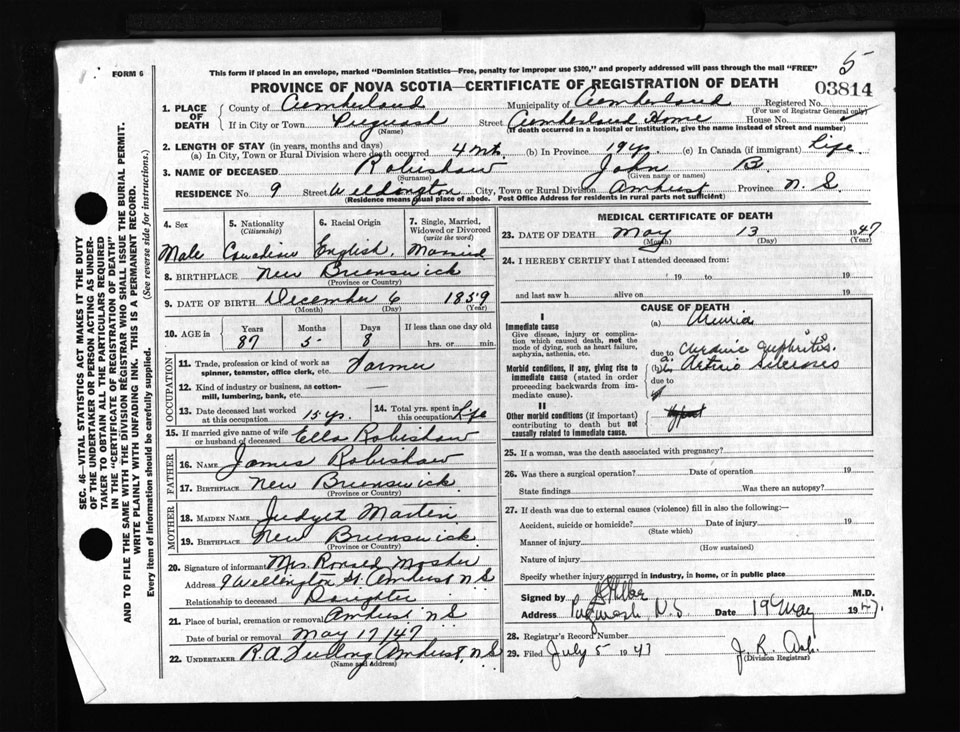 5
FORM 6
This form if placed in an envelope, marked "Dominion Statistics—Free, penalty for improper use $300," and properly addressed will pass through the mail "FREE"
PROVINCE OF NOVA SCOTIA—CERTIFICATE OF REGISTRATION OF DEATH
03814
1. PLACE OF DEATH
County of Cumberland Municipality of Cumberland Registered No.
(For use of Registrar General only)
If in City or Town Pugwash Street Cumberland Home House No.
(Name) (If death occurred in a hospital or institution, give the name instead of street and number)
2. LENGTH OF STAY (in years, months and days)
(a) In City, Town or Rural Division where death occurred 4 mts. (b) In Province 19 yrs (c) In Canada (if immigrant) Life
3. NAME OF DECEASED Robishaw John B.
(Surname) (Given name or names)
RESIDENCE No. 9 Street Welldington City, Town or Rural Division Amherst Province N. S.
(Residence means usual place of abode. Post Office Address for residents in rural parts not sufficient)
4. Sex
Male
5. Nationality
(Citizenship)
Canadian
6. Racial Origin
English.
7. Single, Married, Widowed or Divorced
(write the word)
Married
8. BIRTHPLACE New Brunswick
(Province or Country)
9. DATE OF BIRTH December 6 1859
(Month) (Day) (Year)
10. AGE in Years Months Days If less than one day old
87 5 8 hrs. or min.
OCCUPATION
11. Trade, profession or kind of work as spinner, teamster, office clerk, etc. Farmer
12. Kind of industry or business, as cotton-mill, lumbering, bank, etc. —
13. Date deceased last worked at this occupation 15 yrs.
14. Total yrs. spent in this occupation Life
15. If married give name of wife or husband of deceased Ella Robishaw
FATHER
16. Name James Robishaw
17. Birthplace New Brunswick.
(Province or Country)
MOTHER
18. Maiden Name Judyet Martin
19. Birthplace New Brunswick
(Province or Country)
20. Signature of informant Mrs. Ronald Mosher
Address 9 Wellington St. Amherst N S
Relationship to deceased Daughter
21. Place of burial, cremation or removal Amherst N S
Date of burial or removal May 17/47
22. UNDERTAKER R.A. Furlong Amherst, N S
(Name and Address)
MEDICAL CERTIFICATE OF DEATH
23. DATE OF DEATH May 13 1947
(Month) (Day) (Year)
24. I HEREBY CERTIFY that I attended deceased from:
19 to 19
and last saw h alive on 19
CAUSE OF DEATH
I
Immediate cause
Give disease, injury or complication which caused death, not the mode of dying, such as heart failure, asphyxia, asthenia, etc.
(a) Uremia
due to Chronic Nephritis.
Morbid conditions, if any, giving rise to immediate cause (stated in order proceeding backwards from immediate cause).
(b) Arterio Sclerosis
due to
II
Other morbid conditions (if important) contributing to death but not causally related to immediate cause.
25. If a woman, was the death associated with pregnancy?
26. Was there a surgical operation? Date of operation 19
State findings Was there an autopsy?
27. If death was due to external causes (violence) fill in also the following:—
Accident, suicide or homicide? Date of injury 19
(State which)
Manner of injury
(How sustained)
Nature of injury
Specify whether injury occurred in industry, in home, or in public place
Signed by M.D.
Address Pugwash N.S. Date 19 May 1947.
28. Registrar's Record Number
29. Filed July 5 1947
(Division Registrar)
SEC. 46—VITAL STATISTICS ACT MAKES IT THE DUTY OF THE UNDERTAKER OR PERSON ACTING AS UNDERTAKER TO OBTAIN ALL THE PARTICULARS REQUIRED IN THE "CERTIFICATE OF REGISTRATION OF DEATH" AND TO FILE THE SAME WITH THE DIVISION REGISTRAR WHO SHALL ISSUE THE BURIAL PERMIT.
WRITE PLAINLY WITH UNFADING INK. THIS IS A PERMANENT RECORD.
Every item of information should be carefully supplied. (See reverse side for instructions.)